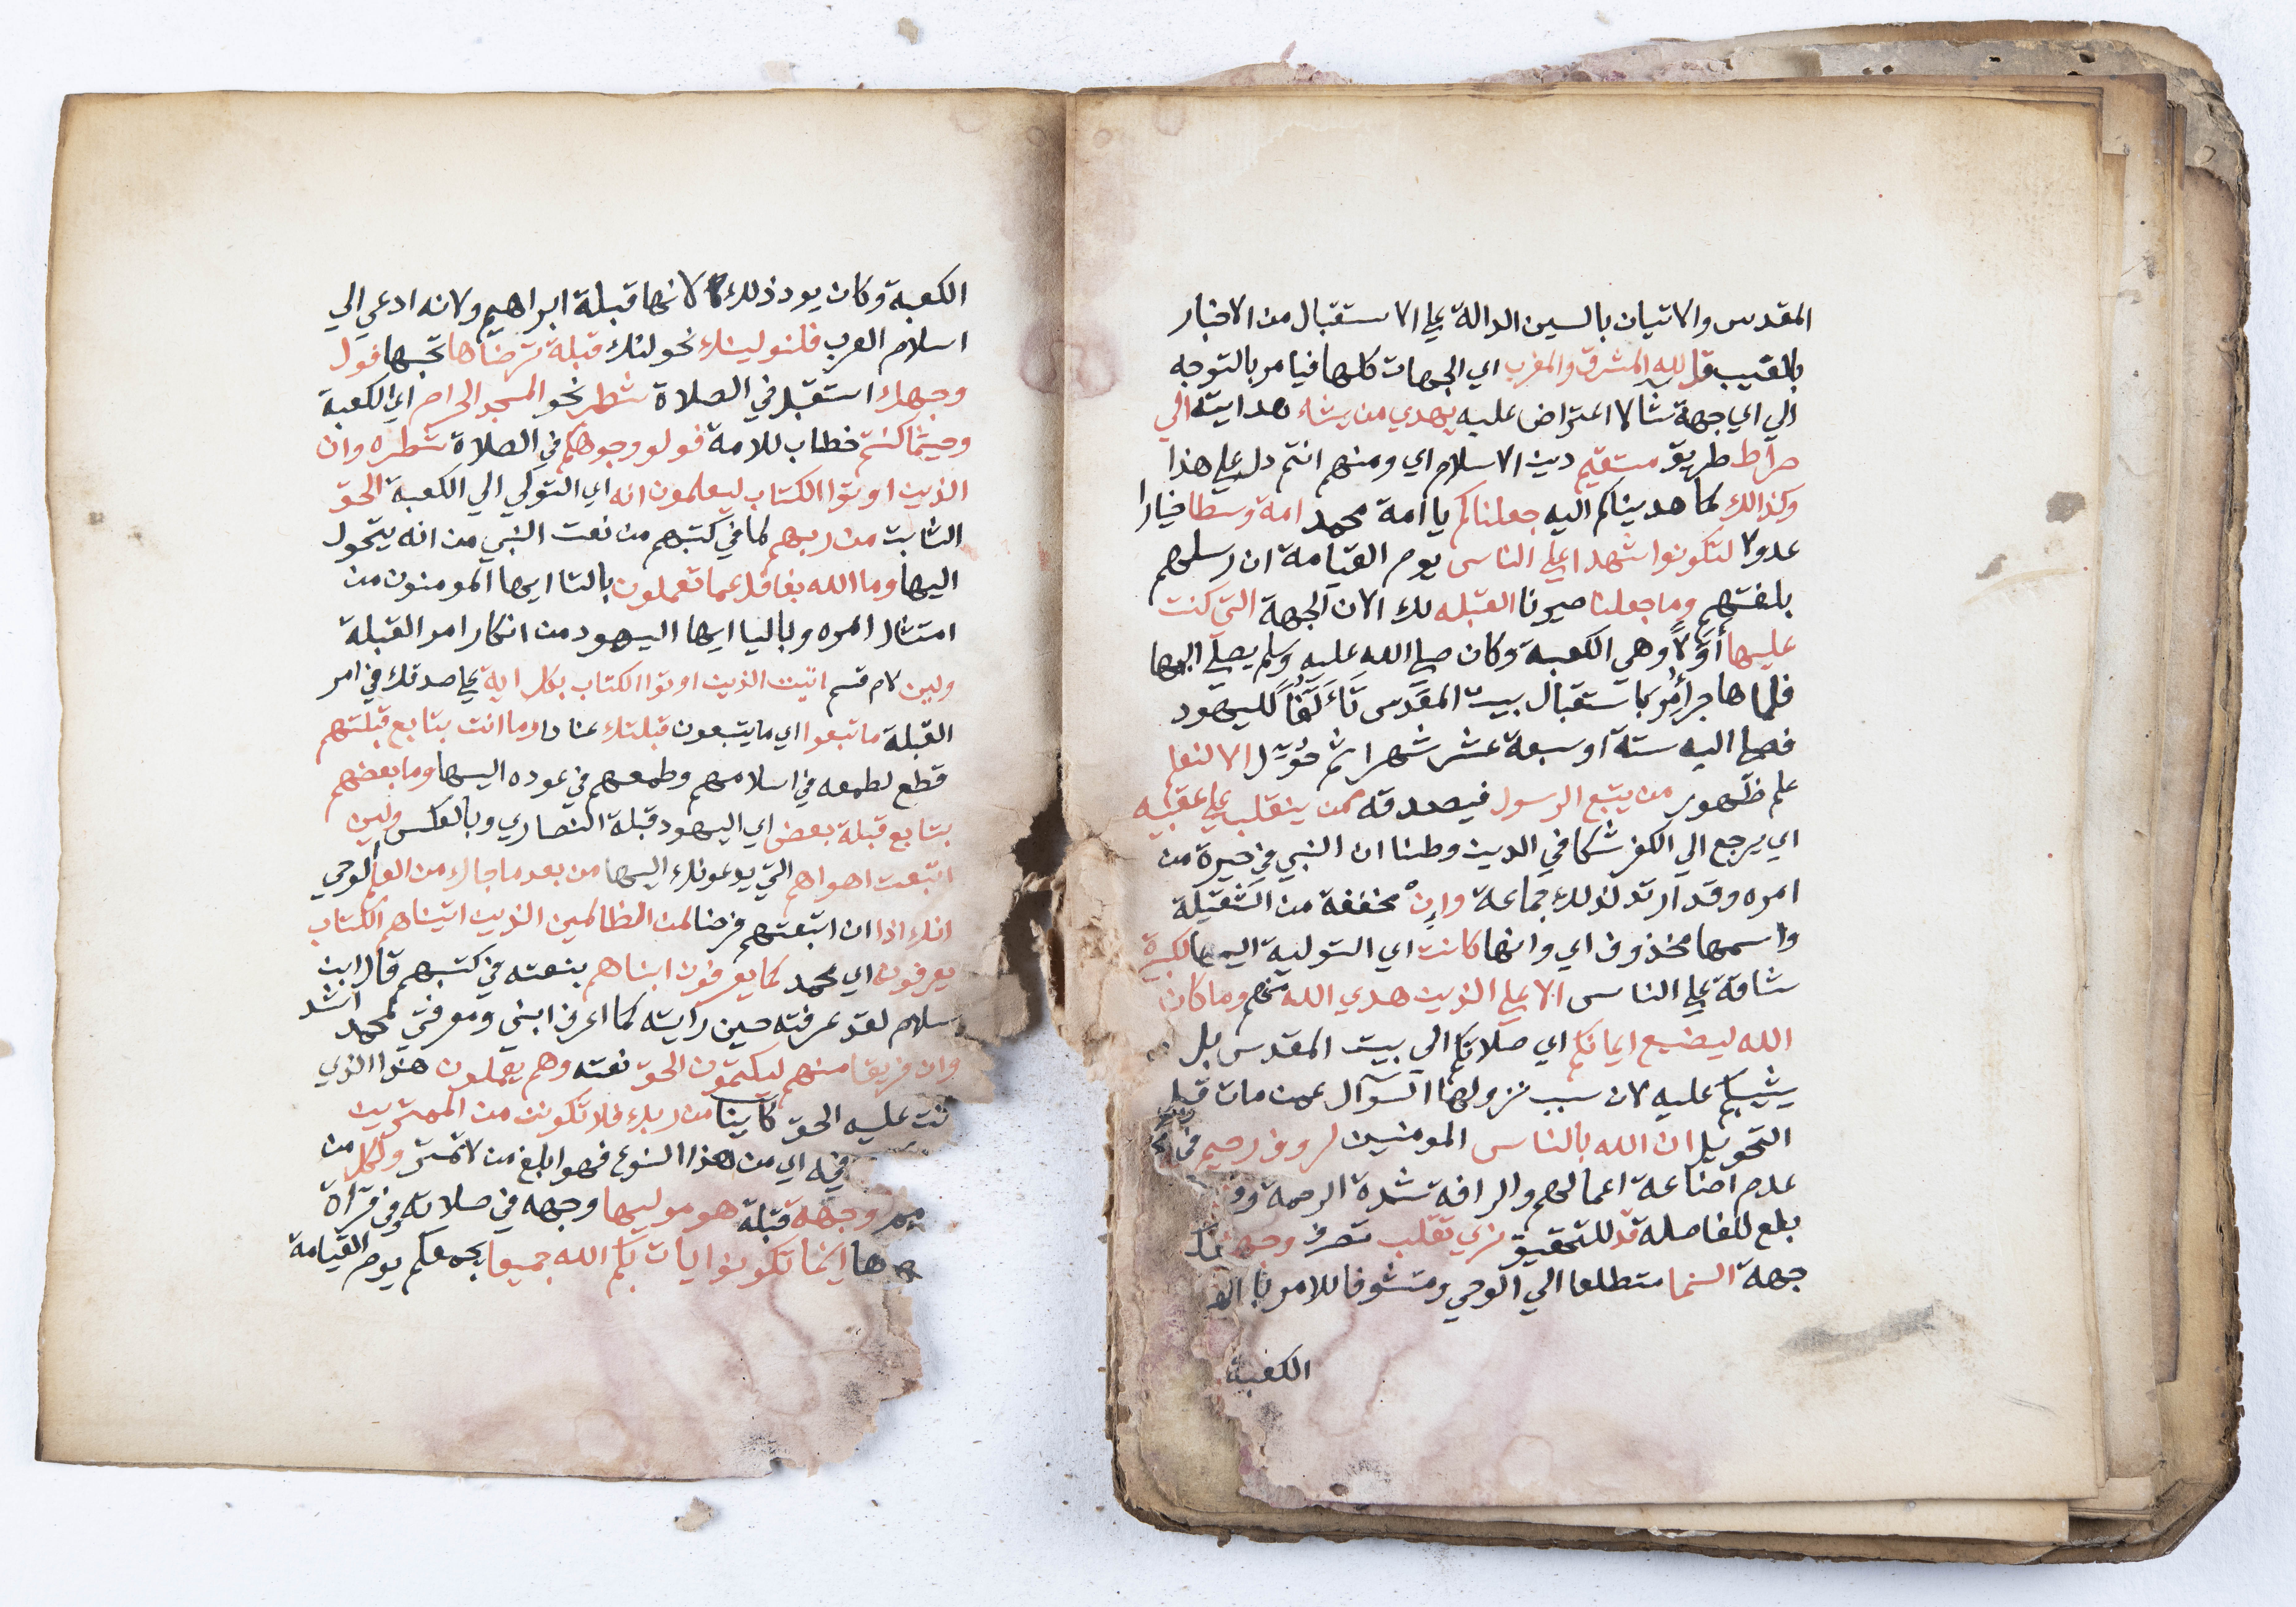 المقدس والاتيان بالسين الدالة علي الاستقبال من الاخبار
بالغيب قل لله المشرق والمغرب اي الجهات كلها فيامر بالتوجه
الي اي جهة شا لا اعتراض عليه يهدي من يشاء هدايته الي
صراط طريق مستقيم دين الاسلام اي ومنهم انتم دل علي هذا
وكذالك كما هديناكم اليه جعلناكم يا امة محمد امة وسطا خيارا
عدولا لتكونوا شهدا علي الناس يوم القيامة ان رسلهم
بلغتهم وما جعلنا صيرنا القبله لك الان الجهة التي كنت
عليها أوَّلاً وهي الكعبة وكان صلي الله عليه وسلم يصلي اليها
فلما هاجر أُمِر باستقبال بيت المقدس تَأَلُّفًا لليهود
فصلي اليه ستة او سبعة عشر شهرا ثم حُوِّل الا لنعلم
علم ظهور من يتبع الرسول فيصدقه ممن ينقلب علي عقبيه
اي يرجع الي الكفر شكا في الدين وظنا ان النبي في حيرة من
امره وقد ارتد لذلك جماعة وإِنْ مخففة من الثقيلة
واسمها محذوف اي وانها كانت اي التولية اليها لكبيرة
شاقة علي الناس الا علي الذين هدي الله منهم وما كان
الله ليضيع ايمانكم اي صلاتكم الي بيت المقدس بل
يثيبكم عليه لان سبب نزولها السؤال عمن مات قبل
التحويل ان الله بالناس المومنين لروف رحيم في
عدم اضاعة اعمالهم والرافة شدة الرحمة وو
بلغ للفاصلة قد للتحقيق نري تقلب تصرف وجهك
جهة السما متطلعا الي الوحي ومتشوفا للامر با
الكعبة
الكعبة وكان يود ذلك لانها قبلة ابراهيم ولانه ادعي الي
اسلام العرب فلنولينك نحولنك قبلة ترضاها تحبها فول
وجهك استقبل في الصلاة شطر نحو المسجد الحرام اي الكعبة
وحيثما كنتم خطاب للامة فولو وجوهكم في الصلاة شطره وان
الذين اوتوا الكتاب ليعلمون انه اي التولي الي الكعبة الحق
الثابت من ربهم كما في كتبهم من نعت النبي من انه يتحول
اليها وما الله بغافل عما تعملون بالتا ايها المومنون من
امتثال امره وباليا ايها اليهود من انكار امر القبلة
ولين لام قسم اتيت الذين اوتوا الكتاب بكل اية علي صدقك في امر
القبلة ما تبعوا اي ما يتبعون قبلتك عنادا وما انت بتابع قبلتهم
قطع لطمعه في اسلامهم وطمعهم في عوده اليها وما بعضهم
بتابع قبلة بعض اي اليهود قبلة النصاري وبالعكس ولين
اتبعت اهواهم التي يدعونك اليها من بعد ما جاك من العلم الوحي
انك اذا ان اتبعتهم فرضا لمن الظالمين الذين اتيناهم الكتاب
يعرفونه اي محمد كما يعرفون ابناهم بنعته في كتبهم قال ابن
سلام لقد عرفته حين رايته كما اعرف ابني ومعرفتي لمحمد اشد
وان فريقا منهم ليكتمون الحق نعته وهم يعملون هذا الذي
نت عليه الحق كاينا من ربك فلا تكونن من الممترين
فيه اي من هذا النوع فهو ابلغ من لا تمتر ولكل من
وجهة قبلة هو موليها وجهه في صلاته وفي قراة
ها اينما تكونوا يات بكم الله جميعا يجمعكم يوم القيامة